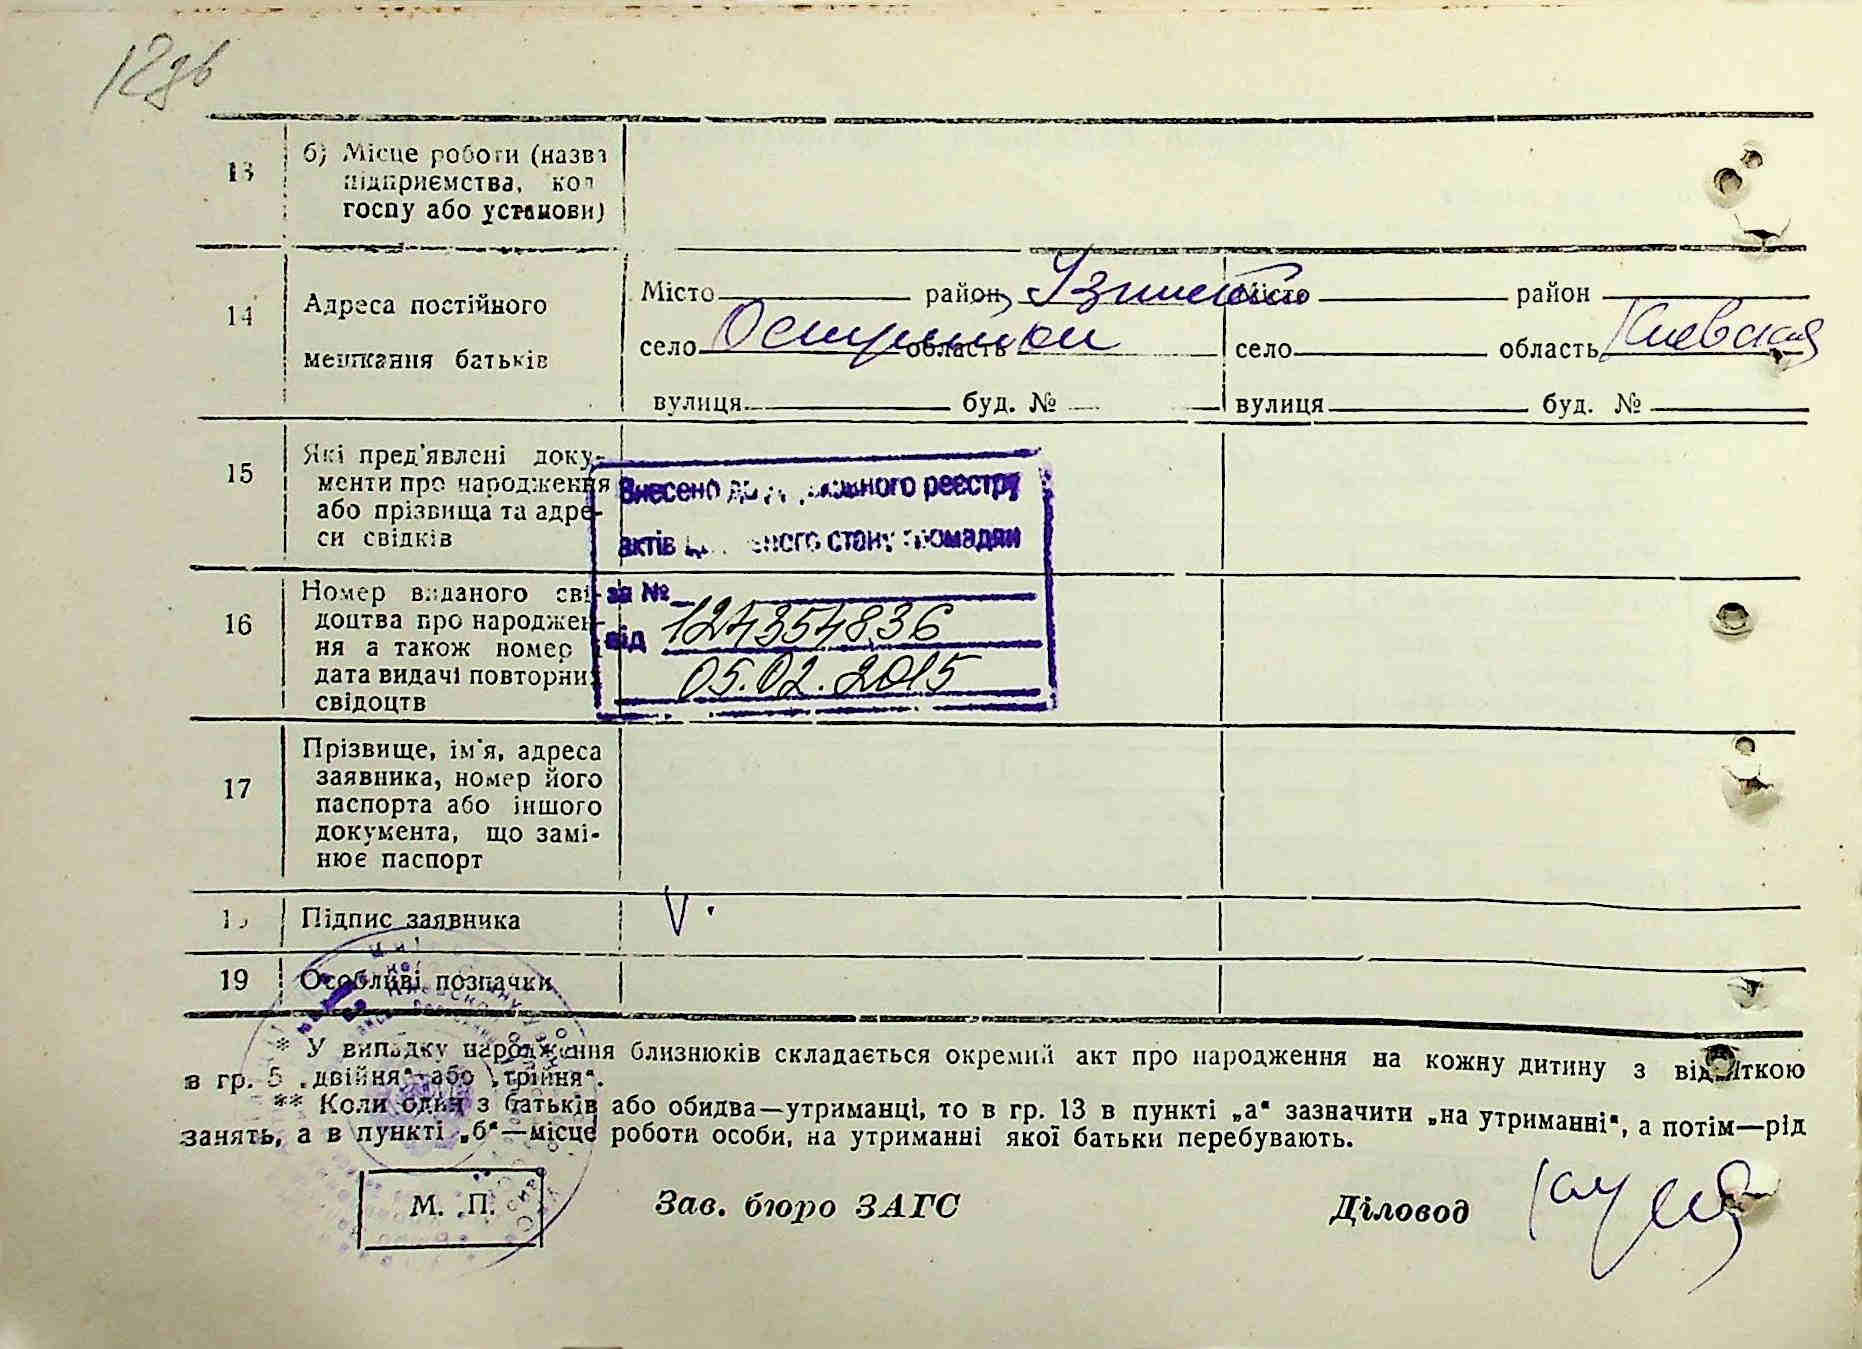 12
13
б) Місце роботи (назва
підприємства, кол
госпу або установи)
14
Адреса постійного
мешкання батьків
Місто район Місто район
село Острийки область село область Киевская
вулиця буд. № вулиця буд. №
15
Які пред'явлені доку-
менти про народження
або прізвища та адре-
си свідків
Внесено до реєстру
актів стану громадян
за №
124354836
від
05.02.2015
16
Номер виданого сві-
доцтва про народжен-
ня а також номер
дата видачі повторних
свідоцтв
17
Прізвище, ім'я, адреса
заявника, номер його
паспорта або іншого
документа, що замі-
нює паспорт
Підпис заявника
V
19
Особливі позначки
* У випадку народження близнюків складається окремий акт про народження на кожну дитину з відміткою
в гр. 5 „двійня“ або „трійня“.
** Коли один з батьків або обидва—утриманці, то в гр. 13 в пункті „а“ зазначити „на утриманні“, а потім—рід
занять, а в пункті „б“—місце роботи особи, на утриманні якої батьки перебувають.
М. П.
Зав. бюро ЗАГС
Діловод